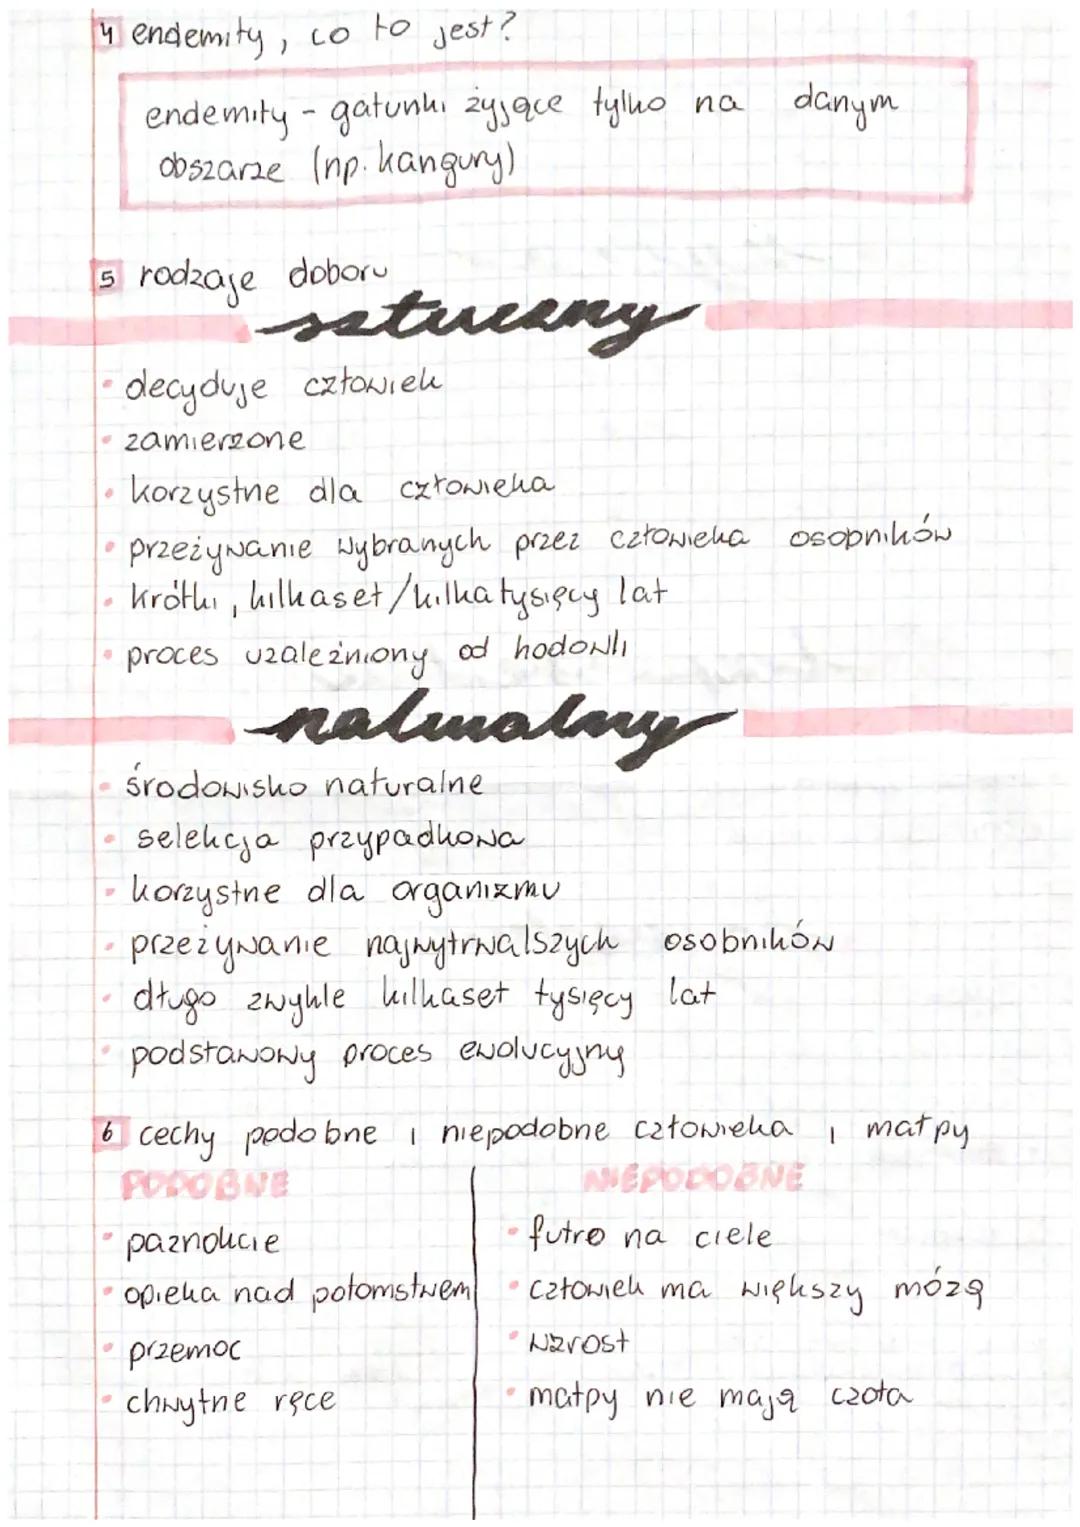 4 endemity, co to jest?
endemity - gatunki żyjące tylko na danym
obszarze (np. kangury)
5 rodzaje doboru
sztuczny
• decyduje człowiek
• zamierzone
• korzystne dla człowieka
• przeżywanie wybranych przez człowieka osobników
• krótki, kilkaset/kilka tysięcy lat
• proces uzależniony od hodowli
naturalny
• środowisko naturalne
• selekcja przypadkowa
• korzystne dla organizmu
• przeżywanie najwytrwalszych osobników
• długo zwykle kilkaset tysięcy lat
• podstawowy proces ewolucyjny
6 cechy podobne i niepodobne człowieka i małpy
PODOBNE
• paznokcie
• opieka nad potomstwem
• przemoc
• chwytne ręce
NIEPODOBNE
• futro na ciele
• człowiek ma większy mózg
• wzrost
• małpy nie mają czoła